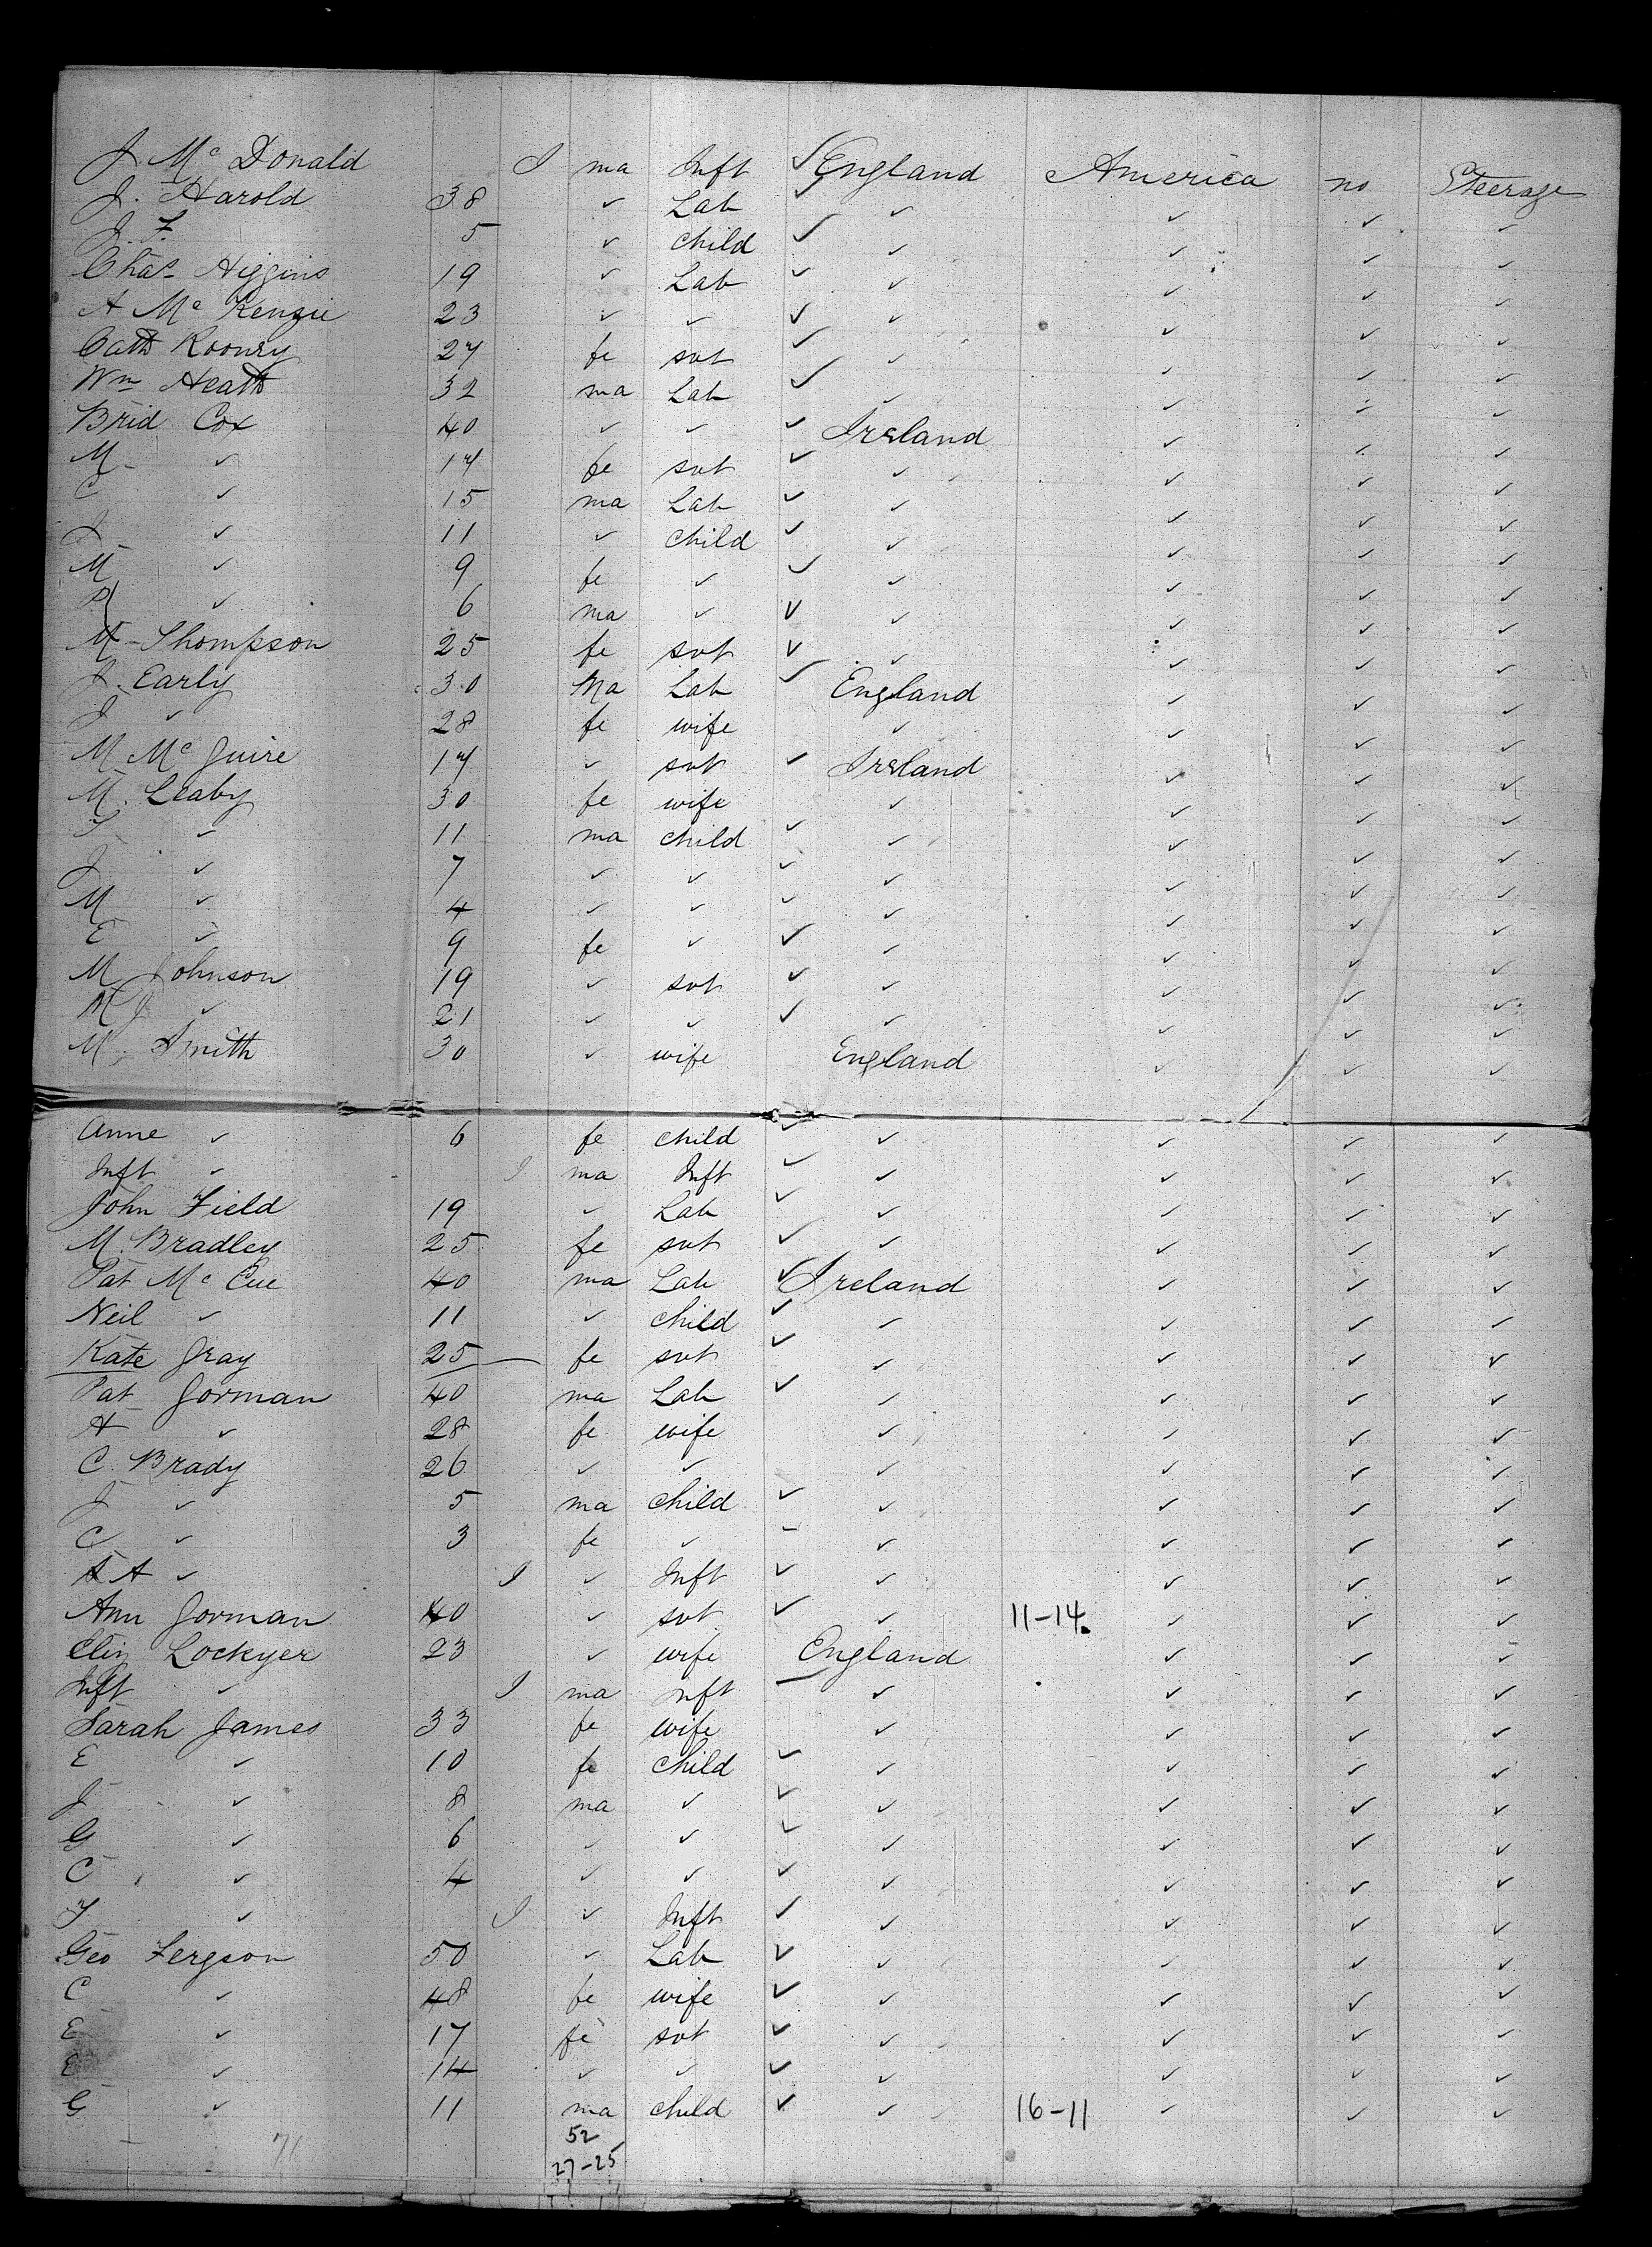 J. Mc Donald I ma Inft ✓ England America no Steerage
J. Harold 38 ✓ Lab ✓ ✓ ✓ ✓ ✓
J. F. 5 ✓ child ✓ ✓ ✓ ✓ ✓
Chas Higgins 19 ✓ Lab ✓ ✓ ✓ ✓ ✓
A Mc Kenzie 23 ✓ ✓ ✓ ✓ ✓ ✓ ✓
Cath Roonry 27 fe svt ✓ ✓ ✓ ✓ ✓
Wm Heath 32 ma Lab ✓ ✓ ✓ ✓ ✓
Brid Cox 40 ✓ ✓ ✓ Ireland ✓ ✓ ✓
M ✓ 17 fe svt ✓ ✓ ✓ ✓ ✓
C ✓ 15 ma Lab ✓ ✓ ✓ ✓ ✓
J ✓ 11 ✓ child ✓ ✓ ✓ ✓ ✓
M ✓ 9 fe ✓ ✓ ✓ ✓ ✓ ✓
✓ 6 ma ✓ ✓ ✓ ✓ ✓ ✓
M Thompson 25 fe svt ✓ ✓ ✓ ✓ ✓
J. Early 30 Ma Lab ✓ England ✓ ✓ ✓
J ✓ 28 fe wife ✓ ✓ ✓ ✓
M Mc Guire 17 ✓ svt ✓ Ireland ✓ ✓ ✓
M. Leahy 30 fe wife ✓ ✓ ✓ ✓
✓ 11 ma child ✓ ✓ ✓ ✓ ✓
J ✓ 7 ✓ ✓ ✓ ✓ ✓ ✓ ✓
M ✓ 4 ✓ ✓ ✓ ✓ ✓ ✓ ✓
E ✓ 9 fe ✓ ✓ ✓ ✓ ✓ ✓
M Johnson 19 ✓ svt ✓ ✓ ✓ ✓ ✓
M J ✓ 21 ✓ ✓ ✓ ✓ ✓ ✓ ✓
M. Smith 30 ✓ wife England ✓ ✓ ✓
Anne ✓ 6 fe child ✓ ✓ ✓ ✓ ✓
Inft ✓ I ma Inft ✓ ✓ ✓ ✓ ✓
John Field 19 ✓ Lab ✓ ✓ ✓ ✓ ✓
M. Bradley 25 fe svt ✓ ✓ ✓ ✓ ✓
Pat Mc Cue 40 ma Lab ✓ Ireland ✓ ✓ ✓
Neil ✓ 11 ✓ child ✓ ✓ ✓ ✓ ✓
Kate Gray 25 fe svt ✓ ✓ ✓ ✓ ✓
Pat Gorman 40 ma Lab ✓ ✓ ✓ ✓ ✓
A ✓ 28 fe wife ✓ ✓ ✓ ✓
C. Brady 26 ✓ ✓ ✓ ✓ ✓ ✓
J ✓ 5 ma child ✓ ✓ ✓ ✓ ✓
C ✓ 3 fe ✓ - ✓ ✓ ✓ ✓
S A ✓ I ✓ Inft ✓ ✓ ✓ ✓ ✓
Ann Gorman 40 ✓ svt ✓ ✓ 11-14. ✓ ✓ ✓
Eliz Lockyer 23 ✓ wife England ✓ ✓ ✓
Inft ✓ I ma Inft ✓ ✓ ✓ ✓
Sarah James 33 fe wife ✓ ✓ ✓ ✓
E ✓ 10 fe child ✓ ✓ ✓ ✓ ✓
J ✓ 8 ma ✓ ✓ ✓ ✓ ✓ ✓
G ✓ 6 ✓ ✓ ✓ ✓ ✓ ✓ ✓
C ✓ 4 ✓ ✓ ✓ ✓ ✓ ✓ ✓
✓ I ✓ Inft ✓ ✓ ✓ ✓ ✓
Geo Fergson 50 ✓ Lab ✓ ✓ ✓ ✓ ✓
C ✓ 48 fe wife ✓ ✓ ✓ ✓ ✓
E ✓ 17 fe svt ✓ ✓ ✓ ✓ ✓
E ✓ 14 ✓ ✓ ✓ ✓ ✓ ✓ ✓
G ✓ 11 ma child ✓ ✓ 16-11 ✓ ✓ ✓
52
71 27-25